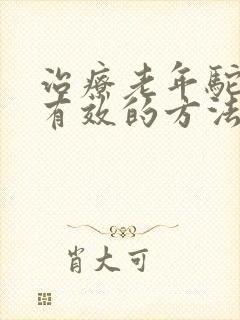 治療老年駝
有效的方法
肖大可